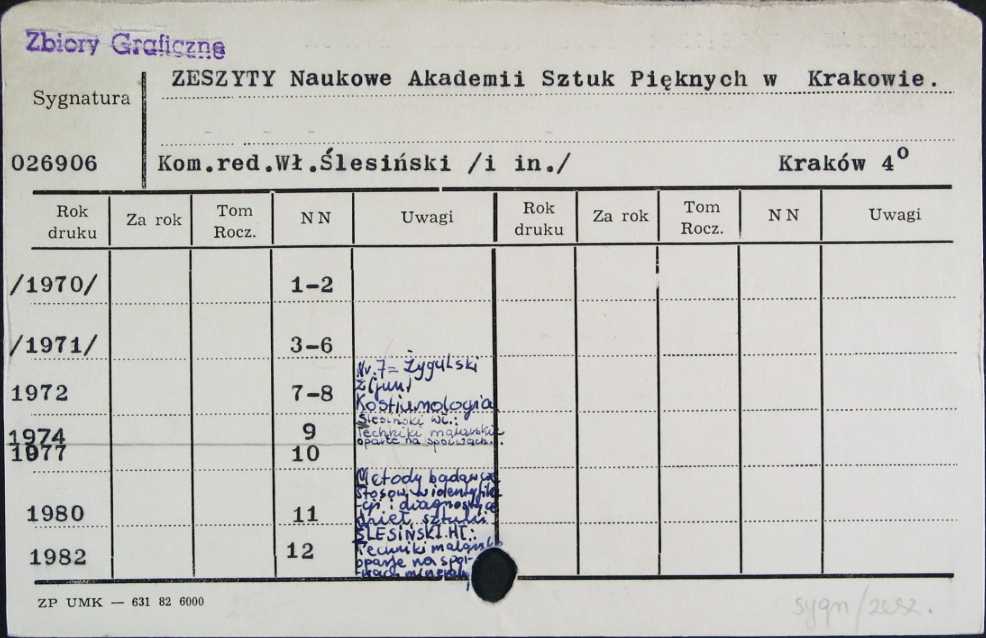 Zbiory Graficzne
ZESZYTY Naukowe Akademii Sztuk Pięknych w Krakowie.
Sygnatura
026906 Kom.red.Wł.Ślesiński /i in./ Kraków 4º
Rok druku Za rok Tom Rocz. NN Uwagi Rok druku Za rok Tom Rocz. NN Uwagi
/1970/ 1-2
/1971/ 3-6
Nr. 7= Żygulski
Z (jun)
1972 7-8 Kostiumologia
Ślesiński Wł.:
1974 9 Techniki malarskie
1977 10 oparte na spoiwach
Metody badawcze
stosow. w identyfika
-cji i diagnostyce
1980 11 dzieł sztuki
ŚLESIŃSKI Wł.:
1982 12 Techniki malarskie
oparte na spoi-
-wach mineraln
ZP UMK — 631 82 6000
sygn/zesz.